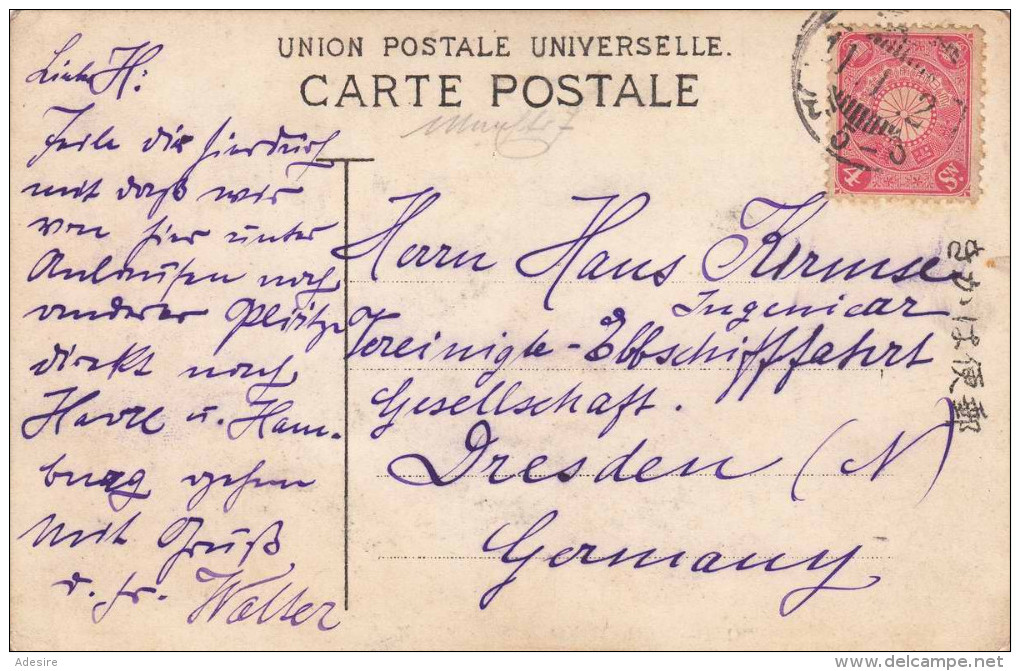 UNION POSTALE UNIVERSELLE.
CARTE POSTALE
Lieber H:
Teile dir hierdurch
mit daß wir
von hier unter
Anlaufen noch
anderer Plätze
direkt nach
Havre u. Ham-
burg gehen
Mit Gruß
d. Fr. Walter
Herrn Hans Kermse
Ingenieur
Vereinigte-Elbschifffahrt
Gesellschaft.
Dresden (N)
Germany
きかは便郵
4
Adesire
delcampe.net